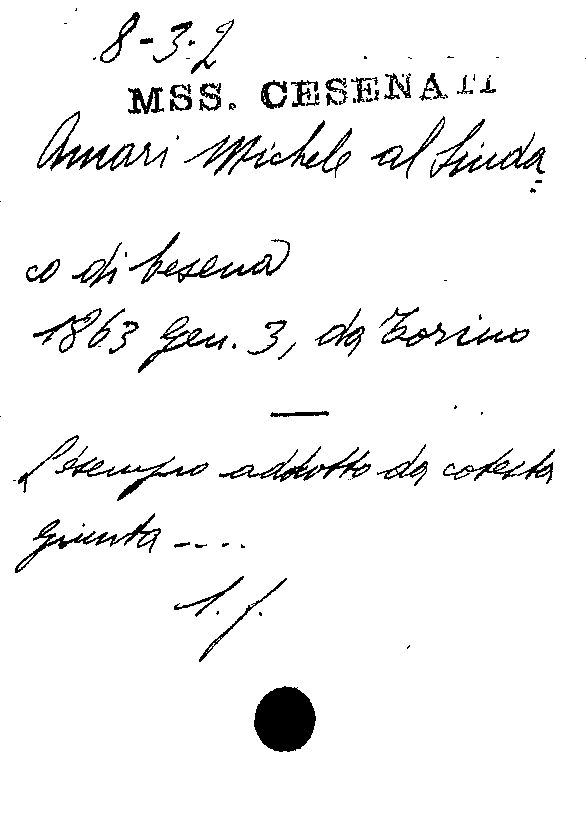 8-3-2
MSS. CESENATI
Amari Michele al Sinda=
co di Cesena
1863 Gen. 3, da Torino
L'esempio addotto da cotesta
Giunta ....
1. f.